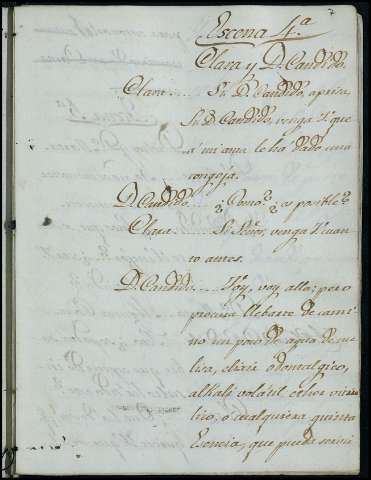 7
Escena 4.a
Clara y D. Candido.
Clara..... Sr. D. Candido, aprisa,
Sr. D. Candido, venga V. que
á mi ama le ha dado una
congoja.
D. Candido..... ¿Como? ¿es posible?
Clara..... Si Señor, venga V. cuan
to antes.
D. Candido..... Voy, voy alla; pero
precisa llebarse de cami
no un poco de agua de me
lisa, elixir odontalgico,
alkali volatil
o cualquiera quinta
Esencia, que pueda servir